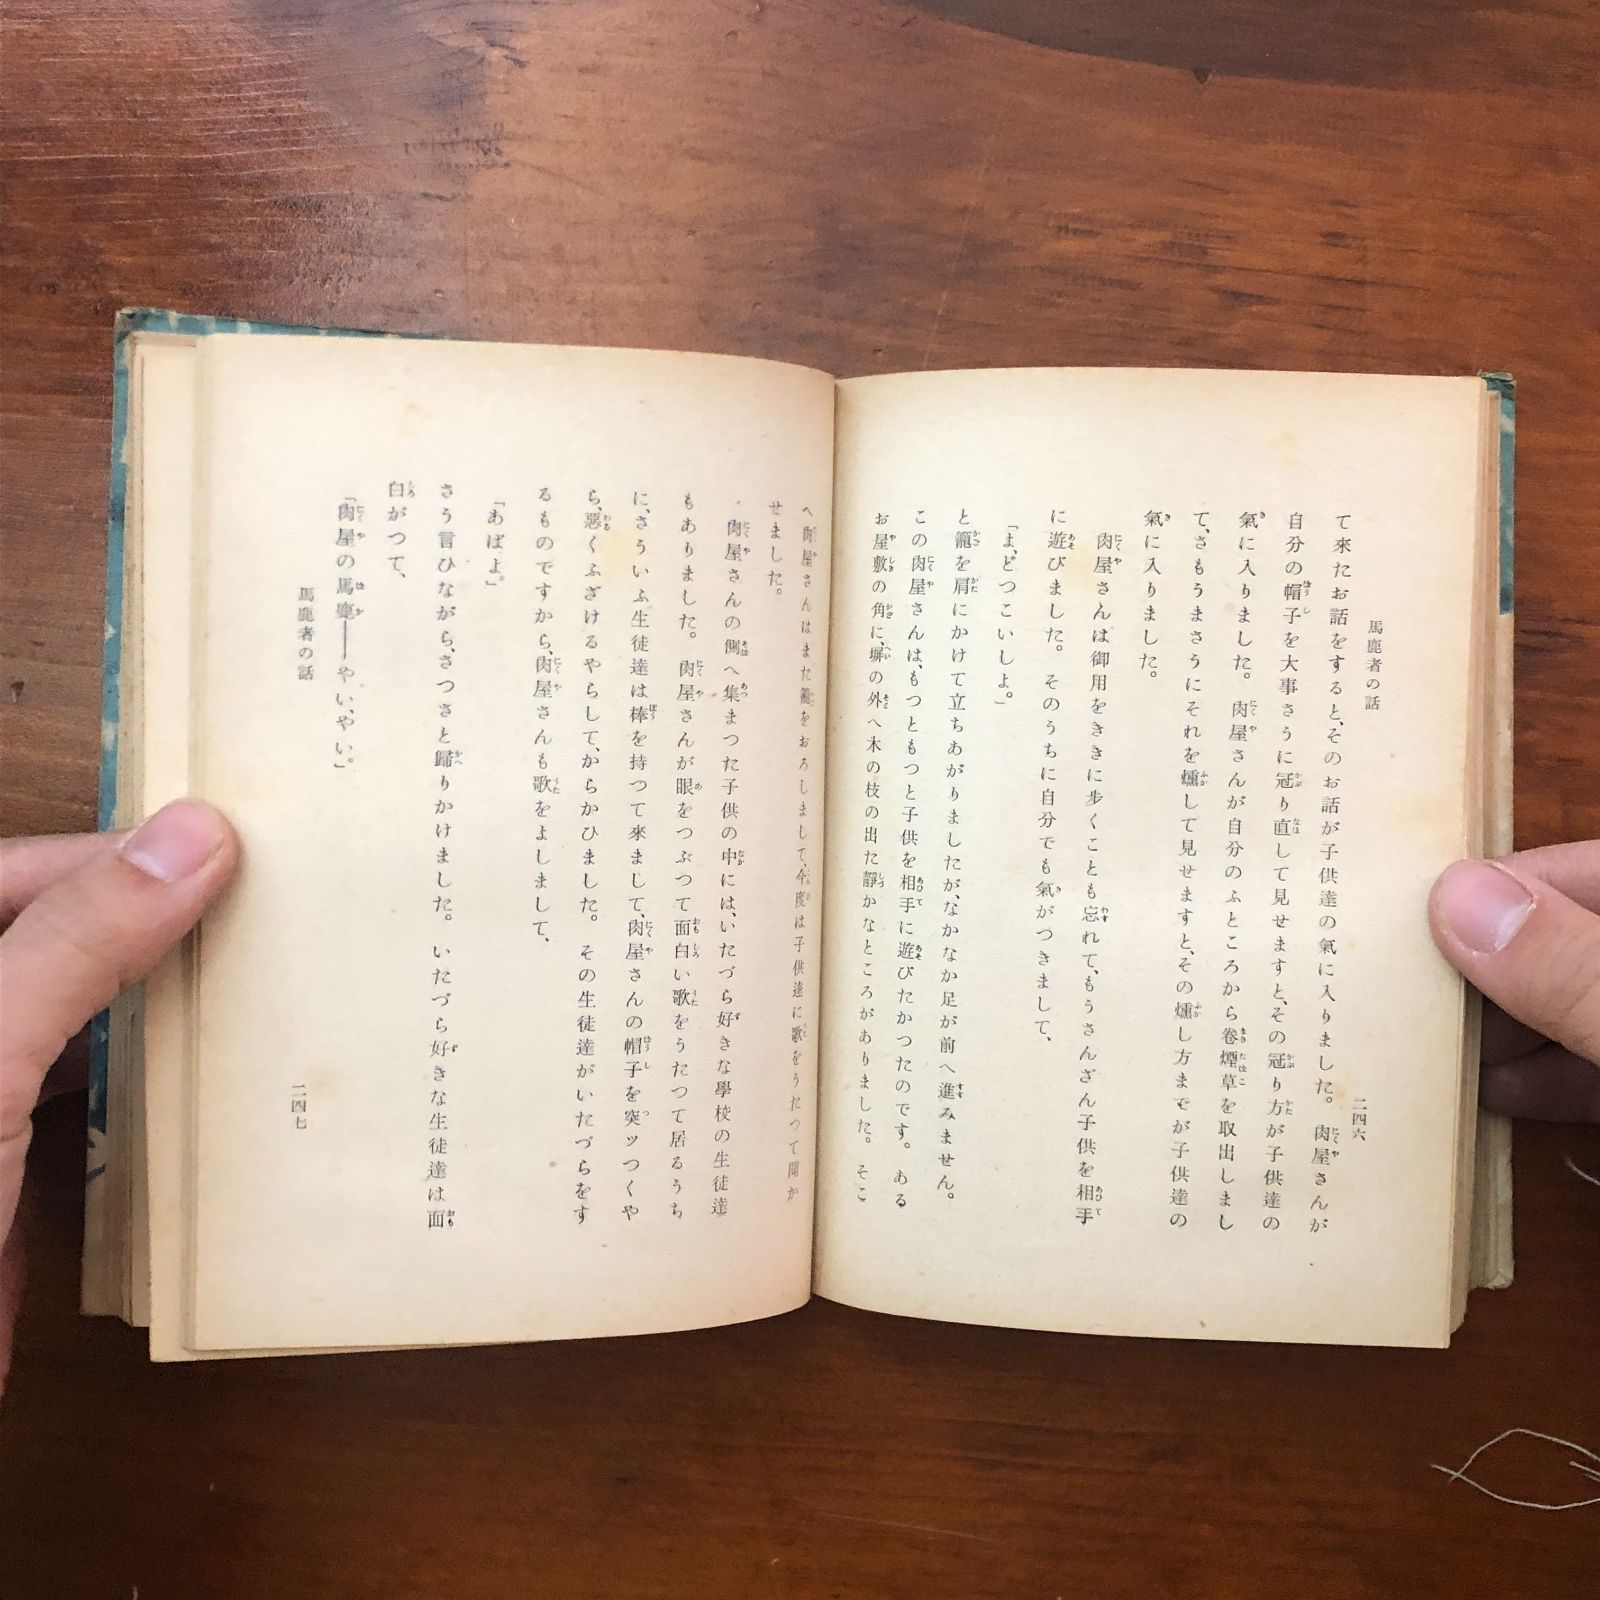 馬鹿者の話
二四六
て來たお話をすると、そのお話が子供達の氣に入りました。肉屋さんが
自分の帽子を大事さうに冠り直して見せますと、その冠り方が子供達の
氣に入りました。肉屋さんが自分のふところから卷煙草を取出しまし
て、さもうまさうにそれを燻して見せますと、その燻し方までが子供達の
氣に入りました。
肉屋さんは御用をききに歩くことも忘れて、もうさんざん子供を相手
に遊びました。そのうちに自分でも氣がつきまして、
「よ、どつこいしよ。」
と籠を肩にかけて立ちあがりましたが、なかなか足が前へ進みません。
この肉屋さんは、もつともつと子供を相手に遊びたかつたのです。ある
お屋敷の角に、塀の外へ木の枝の出た靜かなところがありました。そこ
へ肉屋さんはまた籠をおろしまして、今度は子供達に歌をうたつて聞か
せました。
肉屋さんの側へ集まつた子供の中には、いたづら好きな學校の生徒達
もありました。肉屋さんが眼をつぶつて面白い歌をうたつて居るうち
に、さういふ生徒達は棒を持つて來まして、肉屋さんの帽子を突ッつくや
ら、惡くふざけるやらして、からかひました。その生徒達がいたづらをす
るものですから、肉屋さんも歌をよしまして、
「あばよ。」
さう言ひながら、さつさと歸りかけました。いたづら好きな生徒達は面
白がつて、
「肉屋の馬鹿――やい、やい。」
馬鹿者の話
二四七